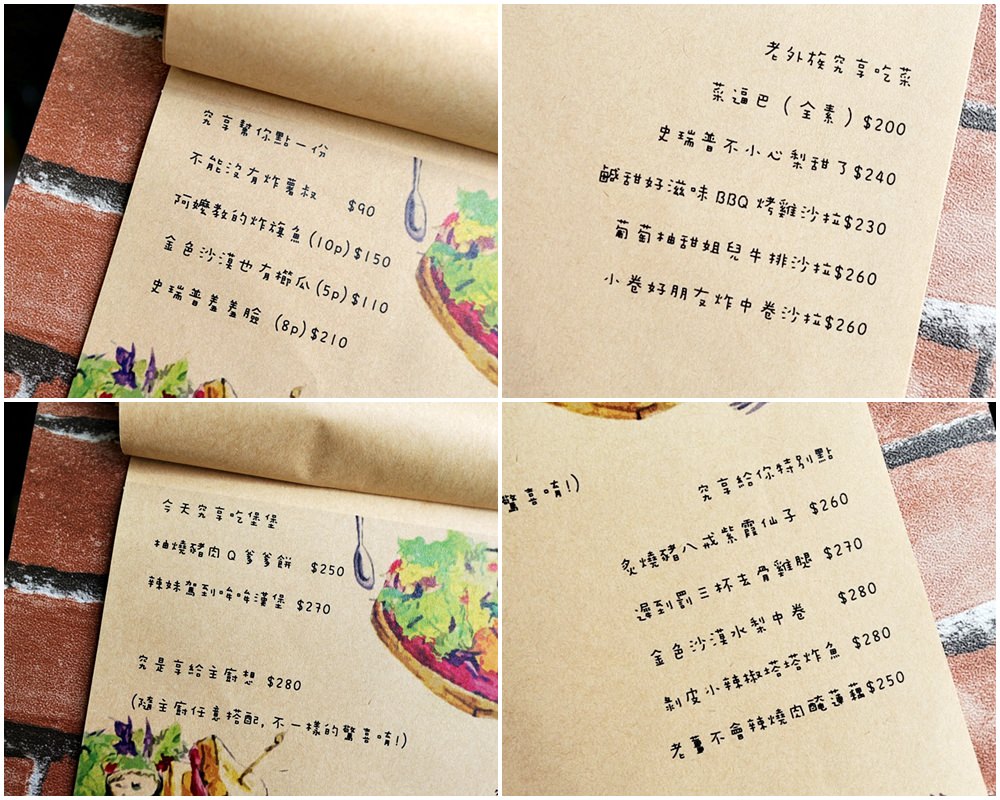 究享幫你點一份
不能沒有炸薯叔 $90
阿嬤教的炸旗魚(10p)$150
金色沙漠也有櫛瓜(5p)$110
史瑞普羞羞臉 (8p)$210
老外族究享吃菜
菜逼巴(全素)$200
史瑞普不小心梨甜了$240
鹹甜好滋味BBQ烤雞沙拉$230
葡萄柚甜姐兒牛排沙拉$260
小卷好朋友炸中卷沙拉$260
今天究享吃堡堡
柚燒豬肉Q爹爹餅 $250
辣妹駕到哞哞漢堡 $270
究是享給主廚想 $280
(隨主廚任意搭配,不一樣的驚喜唷!)
驚喜唷!)
究享給你特別點
炙燒豬八戒紫霞仙子 $260
遲到罰三杯去骨雞腿 $270
金色沙漠水梨中卷 $280
剝皮小辣椒塔塔炸魚 $280
老薑不會辣燒肉醃蓮藕$250